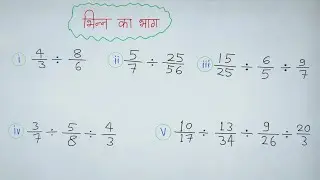 भिन्न का भाग
i 4/3 ÷ 8/6 ii 5/7 ÷ 25/56 iii 15/25 ÷ 6/5 ÷ 9/7
iv 3/7 ÷ 5/8 ÷ 4/3 V 10/17 ÷ 13/34 ÷ 9/26 ÷ 20/3